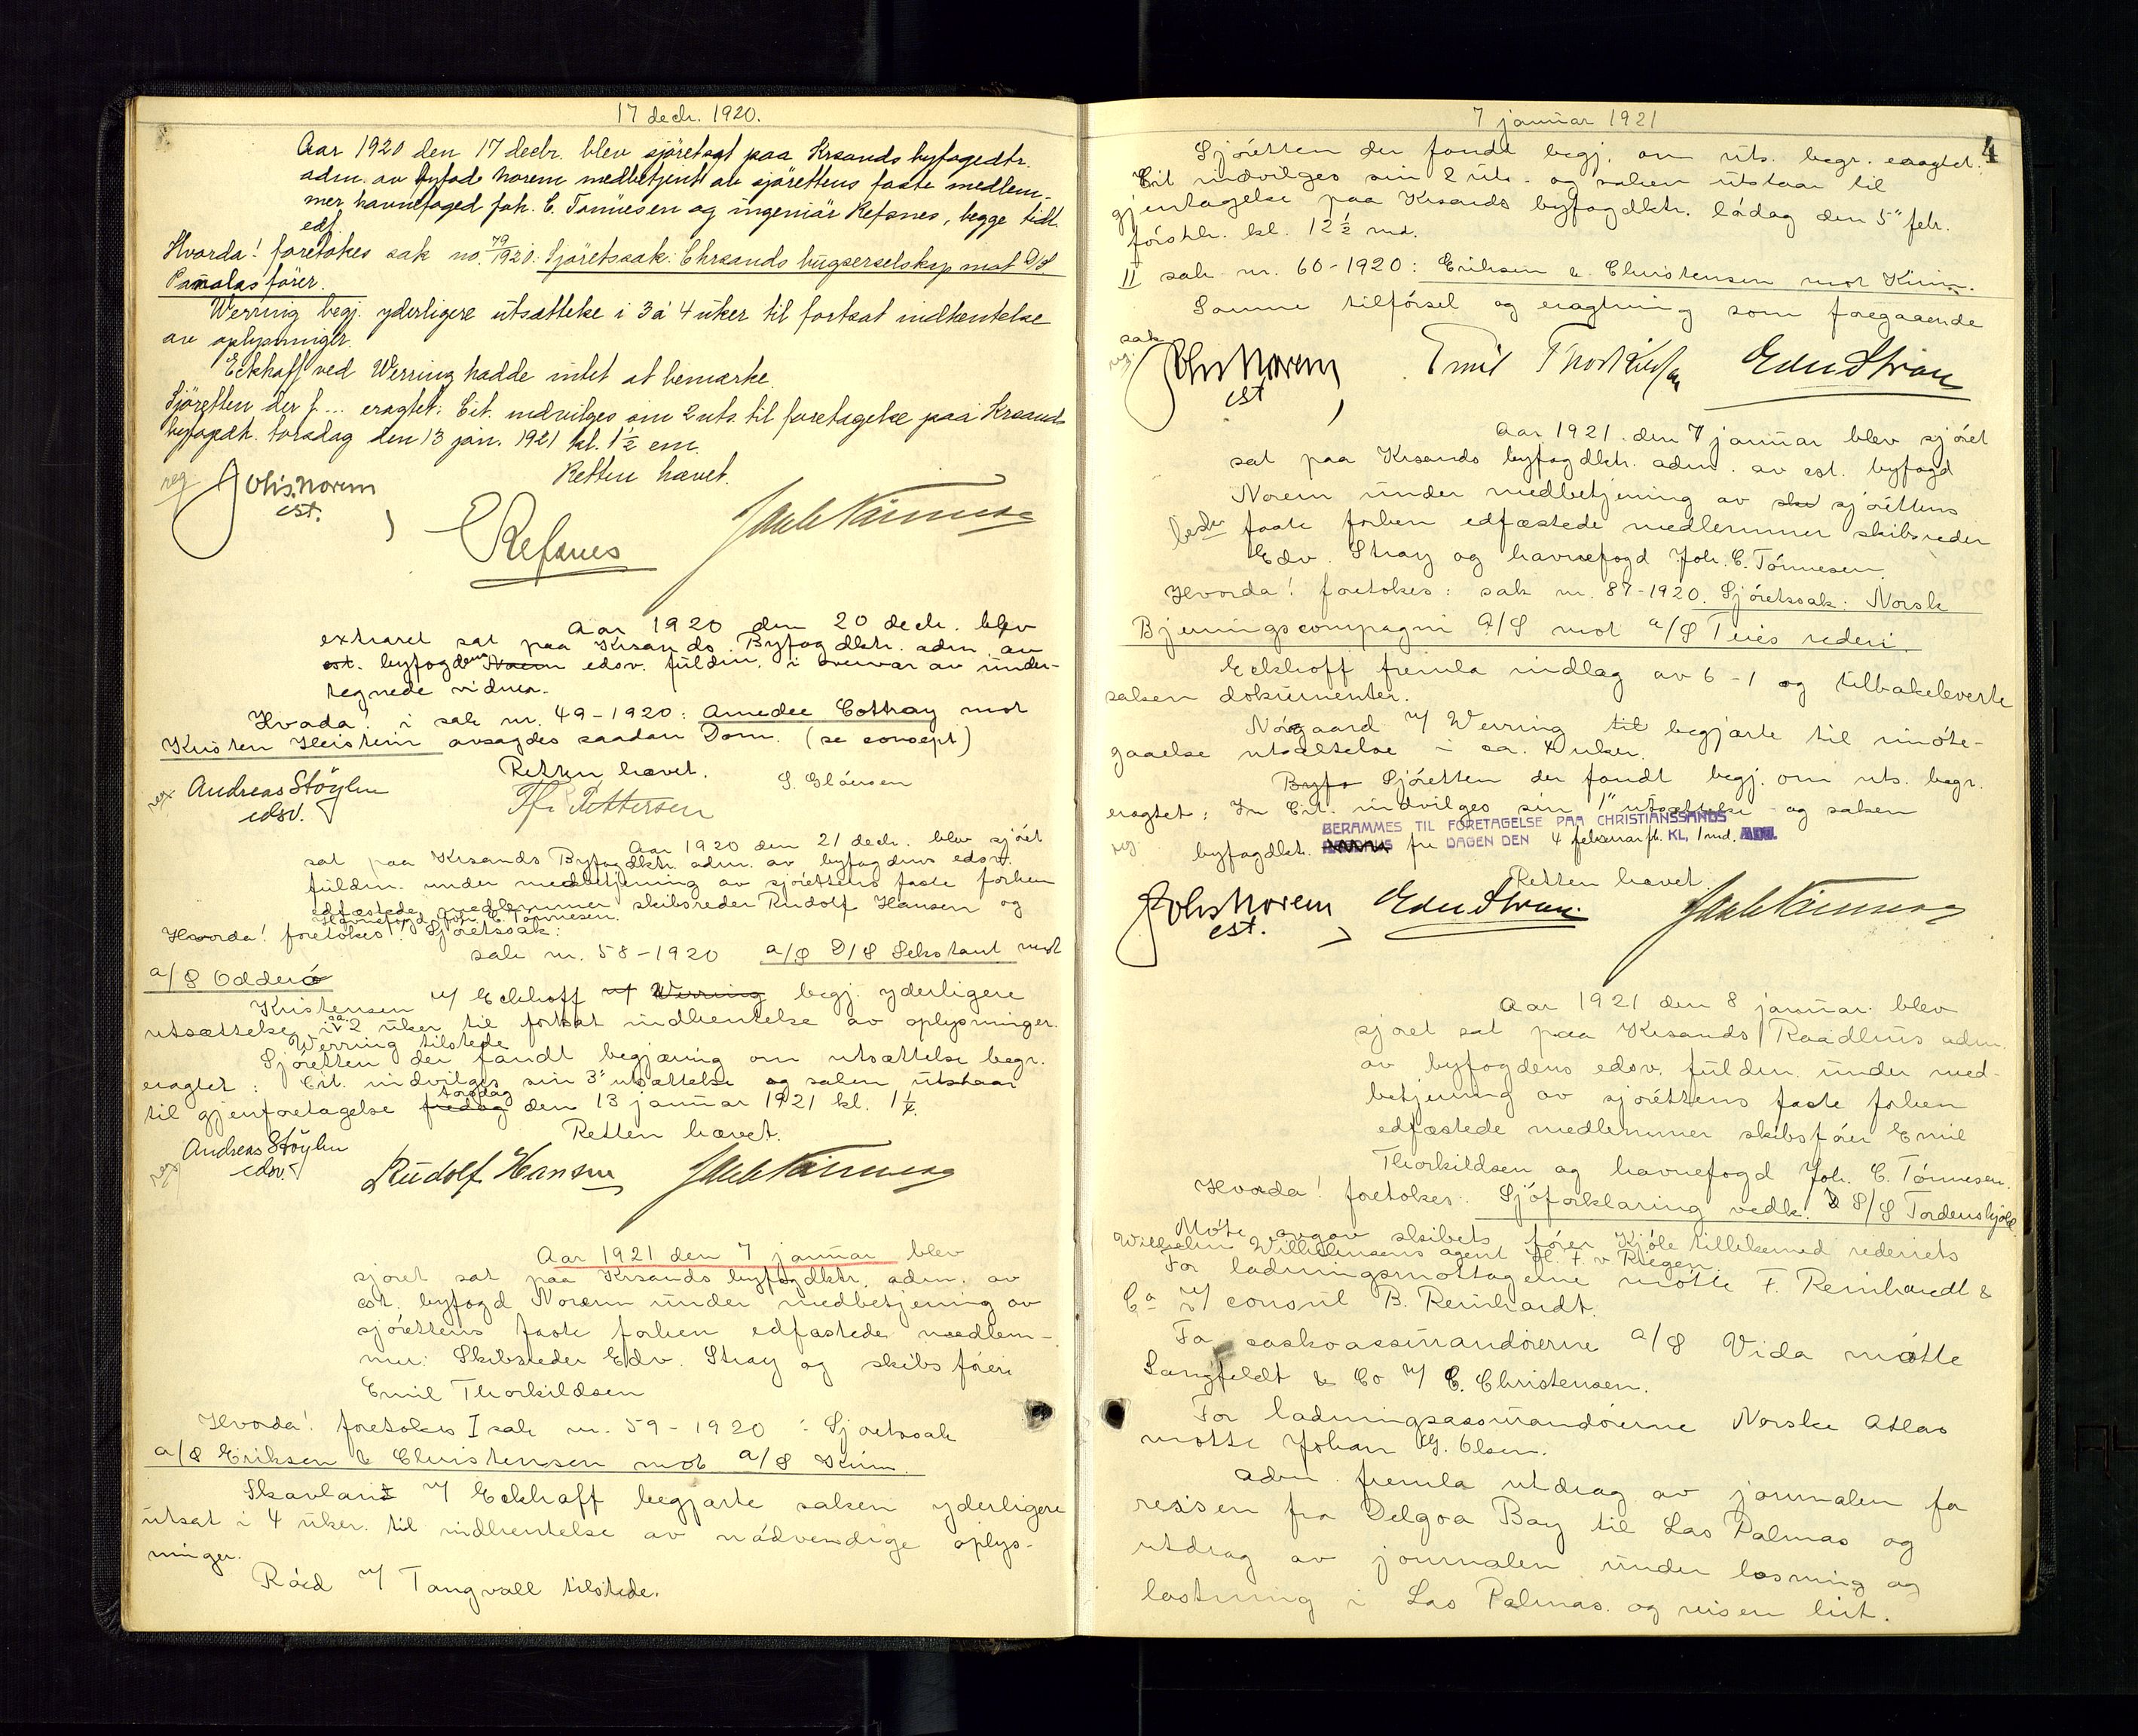 17 decbr. 1920.
Aar 1920 den 17 decbr. blev sjöretsat paa Krsands byfogedktr.
adm. av byfode Norem medbetjent av sjörettens faste medlem-
mer havnefoged Joh. C. Tönnesen og ingeniör Refsnes, begge tidl.
edf.
Hvorda! foretokes sak no. 79/1920: Sjöretssak: Chrsands bugserselskap mot D/S
Panolas förer.
Werring begj. yderligere utsættelse i 3 à 4 uker til fortsat indhentelse
av oplysninger.
Eckhoff ved Werring hadde intet at bemærke.
Sjöretten der f... eragtet: Cit. indvilges sin 2 uts. til foretagelse paa Krsands
byfogdktr. torsdag den 13 jan. 1921 kl. 1½ em.
Retten hævet.
reg
Johs Norem
cst.
Refsnes
Joh C Tönnesen
Aar 1920 den 20 decbr. blev
extraret sat paa Krsands Byfogdktr. adm. av
cst. byfogdens Norem edsv. fuldm. i overvær av under-
tegnede vidner.
Hvorda! i sak nr. 49-1920: Amedee Cottray mot
Kristen Heistein avsagdes saadan Dom. (se concept)
Retten hævet.
reg Andreas Stöylen
edsv.
Th. Pettersen
S. Glörsen
Aar 1920 den 21 decbr. blev sjöret
sat paa Krsands Byfogdktr. adm. av byfogdens edsv.
fuldm. under medbetjening av sjörettens faste forhen
edfæstede medlemmer skibsreder Rudolf Hansen og
Havnefogd Joh. C. Tönnesen.
Hvorda! foretokes: Sjöretssak:
sak nr. 58-1920 a/S D/S Sekstant mot
a/S Odderö
Kristensen v/ Eckhoff v/ Werring begj. yderligere
utsættelse i ca. 2 uker til fortsat indhentelse av oplysninger.
Werring tilstede
Sjöretten der fandt begjæring om utsættelse begr.
eragtet: Cit. indvilges sin 3" utsættelse og saken utstaar
til gjenforetagelse fredag torsdag den 13 januar 1921 kl. 1½.
Retten hævet.
reg Andreas Stöylen
edsv.
Rudolf Hansen
Joh C Tönnesen
Aar 1921 den 7 januar blev
sjöret sat paa Krsands byfogdktr. adm. av
cst. byfogd Norem under medbetjening av
sjörettens faste forhen edfæstede medlem-
mer: Skibsreder Edv. Stray og skibsförer
Emil Thorkildsen
Hvorda! foretokes I sak nr. 59-1920: Sjöretssak
a/S Eriksen & Christensen mot a/S Kim.
Skavland v/ Eckhoff begjærte saken yderligere
utsat i 4 uker. til indhentelse av nödvendige oplys-
ninger.
Röed v/ Tangvall tilstede.
7 januar 1921
4
Sjöretten der fandt begj. om uts. begr. eragtet:
Cit indvilges sin 2 uts. og saken utstaar til
gjentagelse paa Krsands byfogdktr. lödag den 5" febr.
förstk. kl. 12½ md.
II sak nr. 60-1920: Eriksen & Christensen mot Kim.
Samme tilförsel og eragtning som foregaaende
sak
reg.
Johs Norem
cst
Emil Thorkildsen
Edv Stray
Aar 1921 den 7 januar blev sjöret
sat paa Krsands byfogdktr. adm. av cst. byfogd
Norem under medbetjening av ski sjörettens
faste forhen edfæstede medlemmer skibsreder
Edv. Stray og havnefogd Joh. C. Tönnesen.
Hvorda! foretokes: sak nr. 87-1920. Sjöretssak: Norsk
Bjerningscompagni A/S mot a/S Teies rederi.
Eckhoff fremla indlæg av 6-1 og tilbakeleverte
saksen dokumenter.
Nögaard v/ Werring til begjærte til imöte-
gaaelse utsættelse i ca. 4 uker.
Byfo Sjöretten der fandt begj. om uts. begr.
eragtet: In Cit. indvilges sin 1" utsættelse og saken
BERAMMES TIL FORETAGELSE PAA CHRISTIANSSANDS
reg byfogdktr. fre DAGEN DEN 4 februar fk. KL, 1 md.
Retten hævet.
Johs Norem
cst.
Edv Stray.
Joh C Tönnesen
Aar 1921 den 8 januar. blev
sjöret sat paa Krsands Raadhus adm.
av byfogdens edsv. fuldm. under med-
betjening av sjörettens faste forhen
edfæstede medlemmer skibsförer Emil
Thorkildsen og havnefogd Joh. C. Tönnesen.
Hvorda! foretokes: Sjöforklaring vedk. S/S Tordenskjold
Möte avgav skibets förer Kjöle tillikemed rederiets
Wilhelm Wilhelmsens agent H. F. v Krogen.
For ladningsmottagerne mötte F. Reinhardt &
Co v/ consul B. Reinhardt.
For kaskoassurandörerne a/S Vida mötte
Langfeldt & Co v/ C. Christensen.
For ladningsassurandörerne Norske Atlas
mötte Johan G. Olsen.
Adm. fremla utdrag av journalen for
reisen fra Delgoa Bay til Las Palmas og
utdrag av journalen under losning og
lastning i Las Palmas og reisen hit.